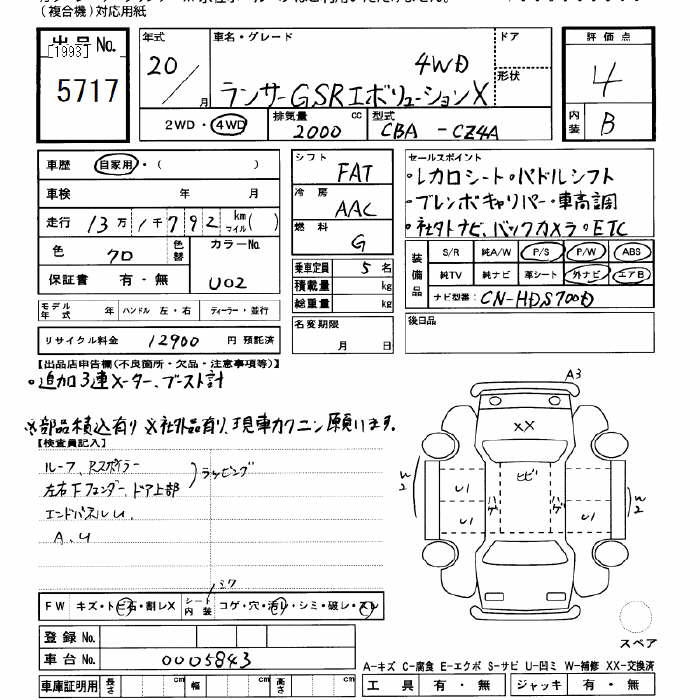 (複合機)対応用紙
出品No.
[1993]
5717
年式
20/月
車名・グレード
4WD
ランサーGSRエボリューションX
ドア
形状
評価点
4
内装
B
2WD・4WD
排気量 2000 cc
型式 CBA - CZ4A
車歴 自家用・( )
車検 年 月
走行 13万1千792km マイル( )
色 クロ 色替 カラーNo.
U02
保証書 有・無
モデル年式 年 ハンドル 左・右 ディーラー・並行
リサイクル料金 12900 円 預託済
シフト FAT
冷房 AAC
燃料 G
乗車定員 5名
積載量 kg
総重量 kg
名変期限
月 日
セールスポイント
・レカロシート・パドルシフト
・ブレンボキャリパー・車高調
・社外ナビ、バックカメラ・ETC
装備品
S/R 純A/W P/S P/W ABS
純TV 純ナビ 革シート 外ナビ エアB
ナビ型番: CN-HDS700D
後日品
【出品店申告欄(不良箇所・欠品・注意事項等)】
・追加3連メーター、ブースト計
※部品積込有り ※社外品有り、現車カクニン願います。
【検査員記入】
ルーフ、Rスポイラー
左右Fフェンダー、ドア上部
)ラッピング
エンドパネルU、
A、U
A3
XX
ヒビ
W2
U1
U1
ハゲ
ハゲ
U1
W2
FW キズ・トビ石・割レX シート内装 コゲ・穴・汚レ・シミ・破レ・スレ
登録No.
車台No. 0005843
車庫証明用 長さ cm 幅 cm 高さ cm
スペア
A-キズ C-腐食 E-エクボ S-サビ U-凹ミ W-補修 XX-交換済
工具 有・無 ジャッキ 有・無